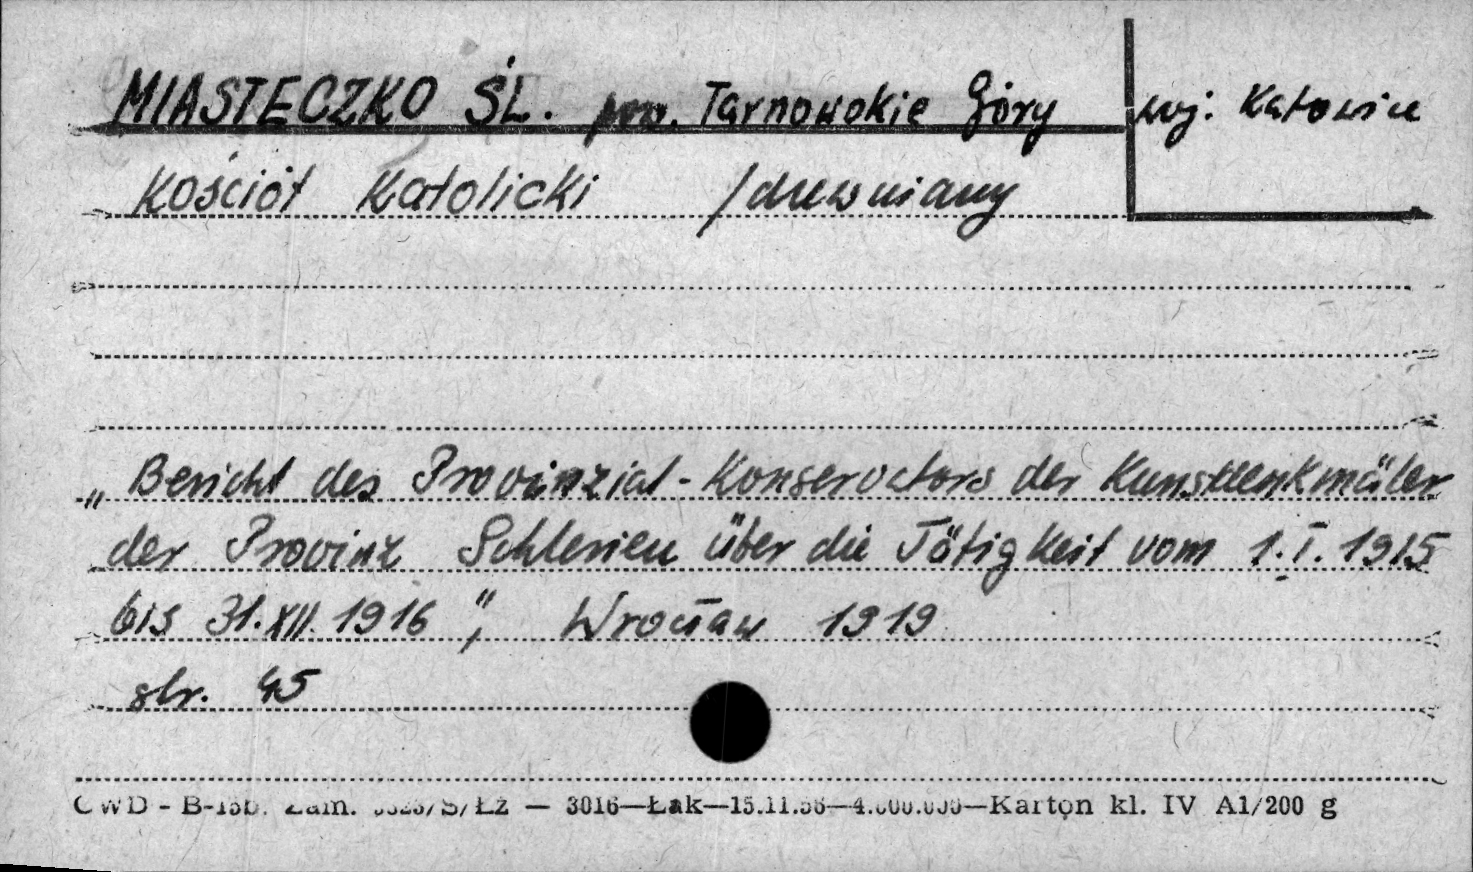 MIASTECZKO ŚL. pow. Tarnowskie Góry woj. Katowice
Kościół Katolicki /drewniany
„Bericht des Provinzial-Konservators der Kunstdenkmäler
der Provinz Schlesien über die Tätigkeit vom 1.I.1915
bis 31.XII.1916", Wrocław 1919
str. 45
CWD - B-15b. Zam. S/Łż — 3016—Łak—15.11.56—4.000.000—Karton kl. IV A1/200 g